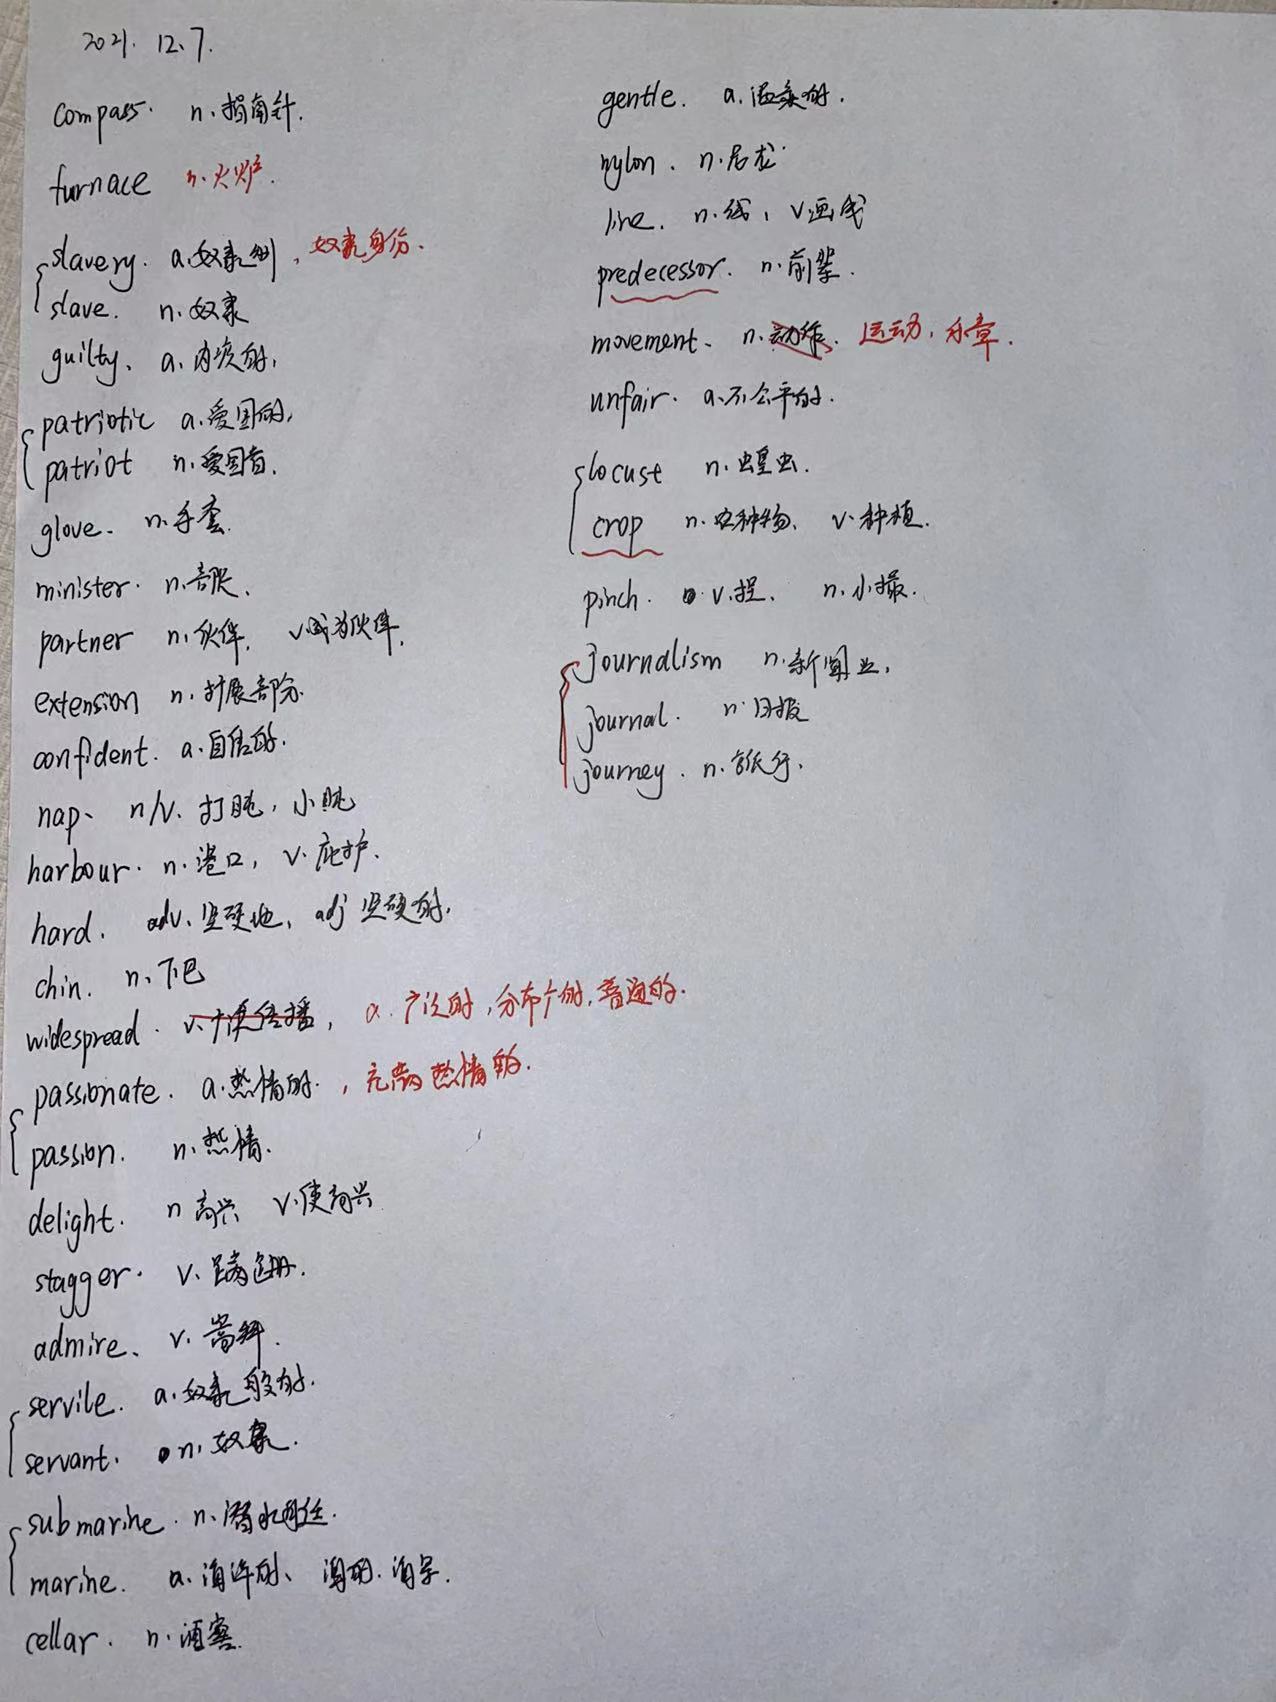 2021. 12.7.
compass. n.指南针.
furnace n.火炉.
slavery. a.奴隶制, 奴隶身份.
slave. n.奴隶
guilty. a.内疚的.
patriotic a.爱国的.
patriot n.爱国者.
glove. n.手套.
minister. n.部长.
partner n.伙伴. v.成为伙伴.
extension n.扩展部分.
confident. a.自信的.
nap. n/v. 打盹, 小盹
harbour. n.港口, v.庇护.
hard. adv.坚硬地, adj坚硬的.
chin. n.下巴
widespread. v.广泛传播, a.广泛的,分布广的,普遍的.
passionate. a.热情的. , 充满热情的.
passion. n.热情.
delight. n高兴 v.使高兴
stagger. v.蹒跚.
admire. v.崇拜.
servile. a.奴隶般的.
servant. n.奴隶.
submarine. n.潜水艇.
marine. a.海洋的、海的.
cellar. n.酒窖.
gentle. a.温柔的.
nylon. n.尼龙
line. n.线, v画线
predecessor. n.前辈.
movement. n.动作. 运动, 乐章.
unfair. a.不公平的.
locust n.蝗虫.
crop n.农种物. v.种植.
pinch. v.捏. n.小撮.
journalism n.新闻业.
journal. n.日报
journey. n.旅行.